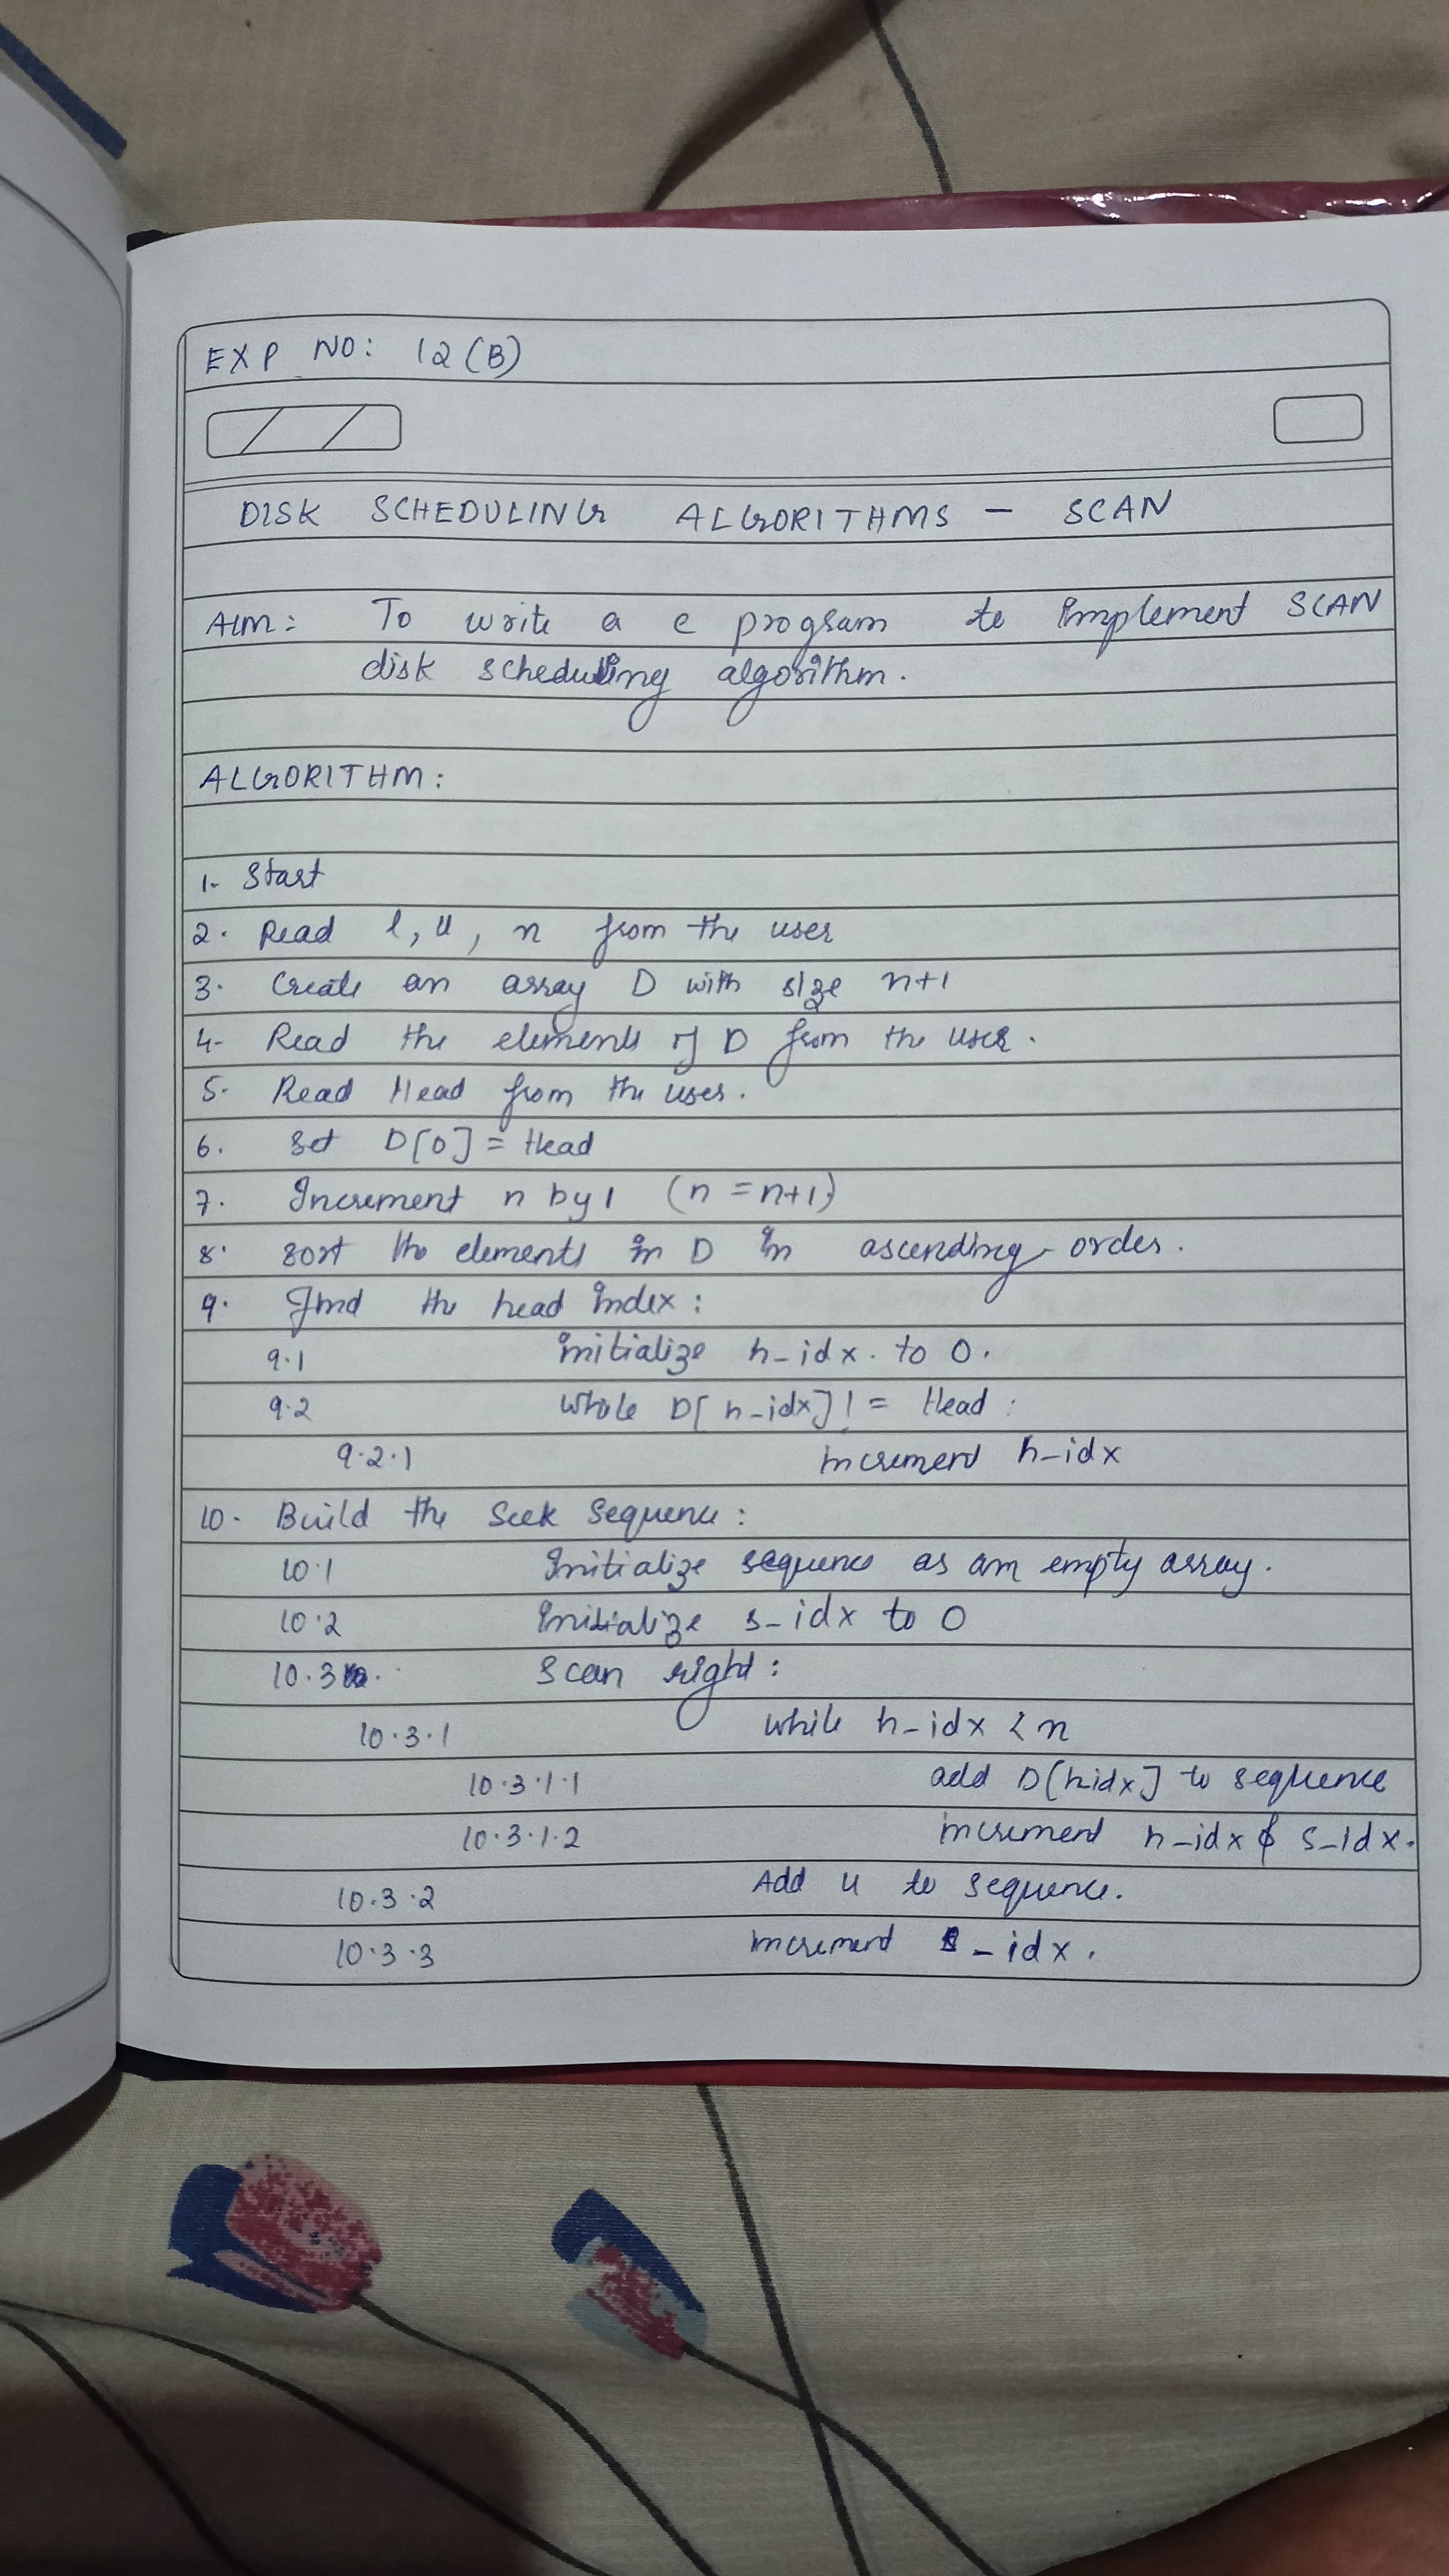 EXP NO: 12(B)
DISK SCHEDULING ALGORITHMS - SCAN
AIM: To write a c program to implement SCAN
disk scheduling algorithm.
ALGORITHM:
1. Start
2. Read l, u, n from the user
3. Create an array D with size n+1
4. Read the elements of D from the user.
5. Read Head from the user.
6. Set D[0] = Head
7. Increment n by 1 (n = n+1)
8. sort the elements in D in ascending order.
9. Find the head index:
9.1 initialize h_idx. to 0.
9.2 While D[h_idx] != Head:
9.2.1 increment h_idx
10. Build the Seek Sequence:
10.1 Initialize sequence as an empty array.
10.2 Initialize s_idx to 0
10.3 Scan right:
10.3.1 while h_idx < n
10.3.1.1 add D[hidx] to sequence
10.3.1.2 increment h_idx & s_idx.
10.3.2 Add u to sequence.
10.3.3 increment s_idx.